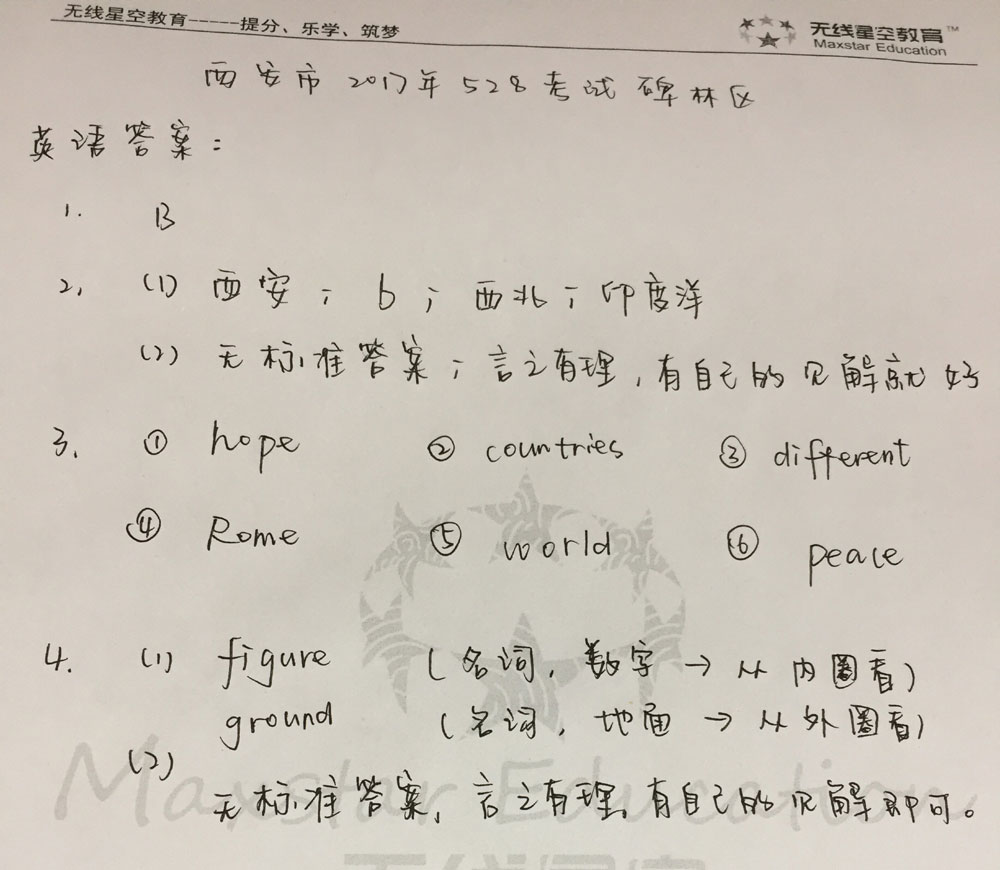 无线星空教育-----提分、乐学、筑梦
无线星空教育™
Maxstar Education
西安市2017年528考试碑林区
英语答案：
1. B
2. (1) 西安；6；西北；印度洋
(2) 无标准答案；言之有理，有自己的见解就好
3. ① hope ② countries ③ different
④ Rome ⑤ world ⑥ peace
4. (1) figure (名词，数字→从内圈看)
ground (名词，地面→从外圈看)
(2)
无标准答案，言之有理，有自己的见解即可。
Maxstar Education